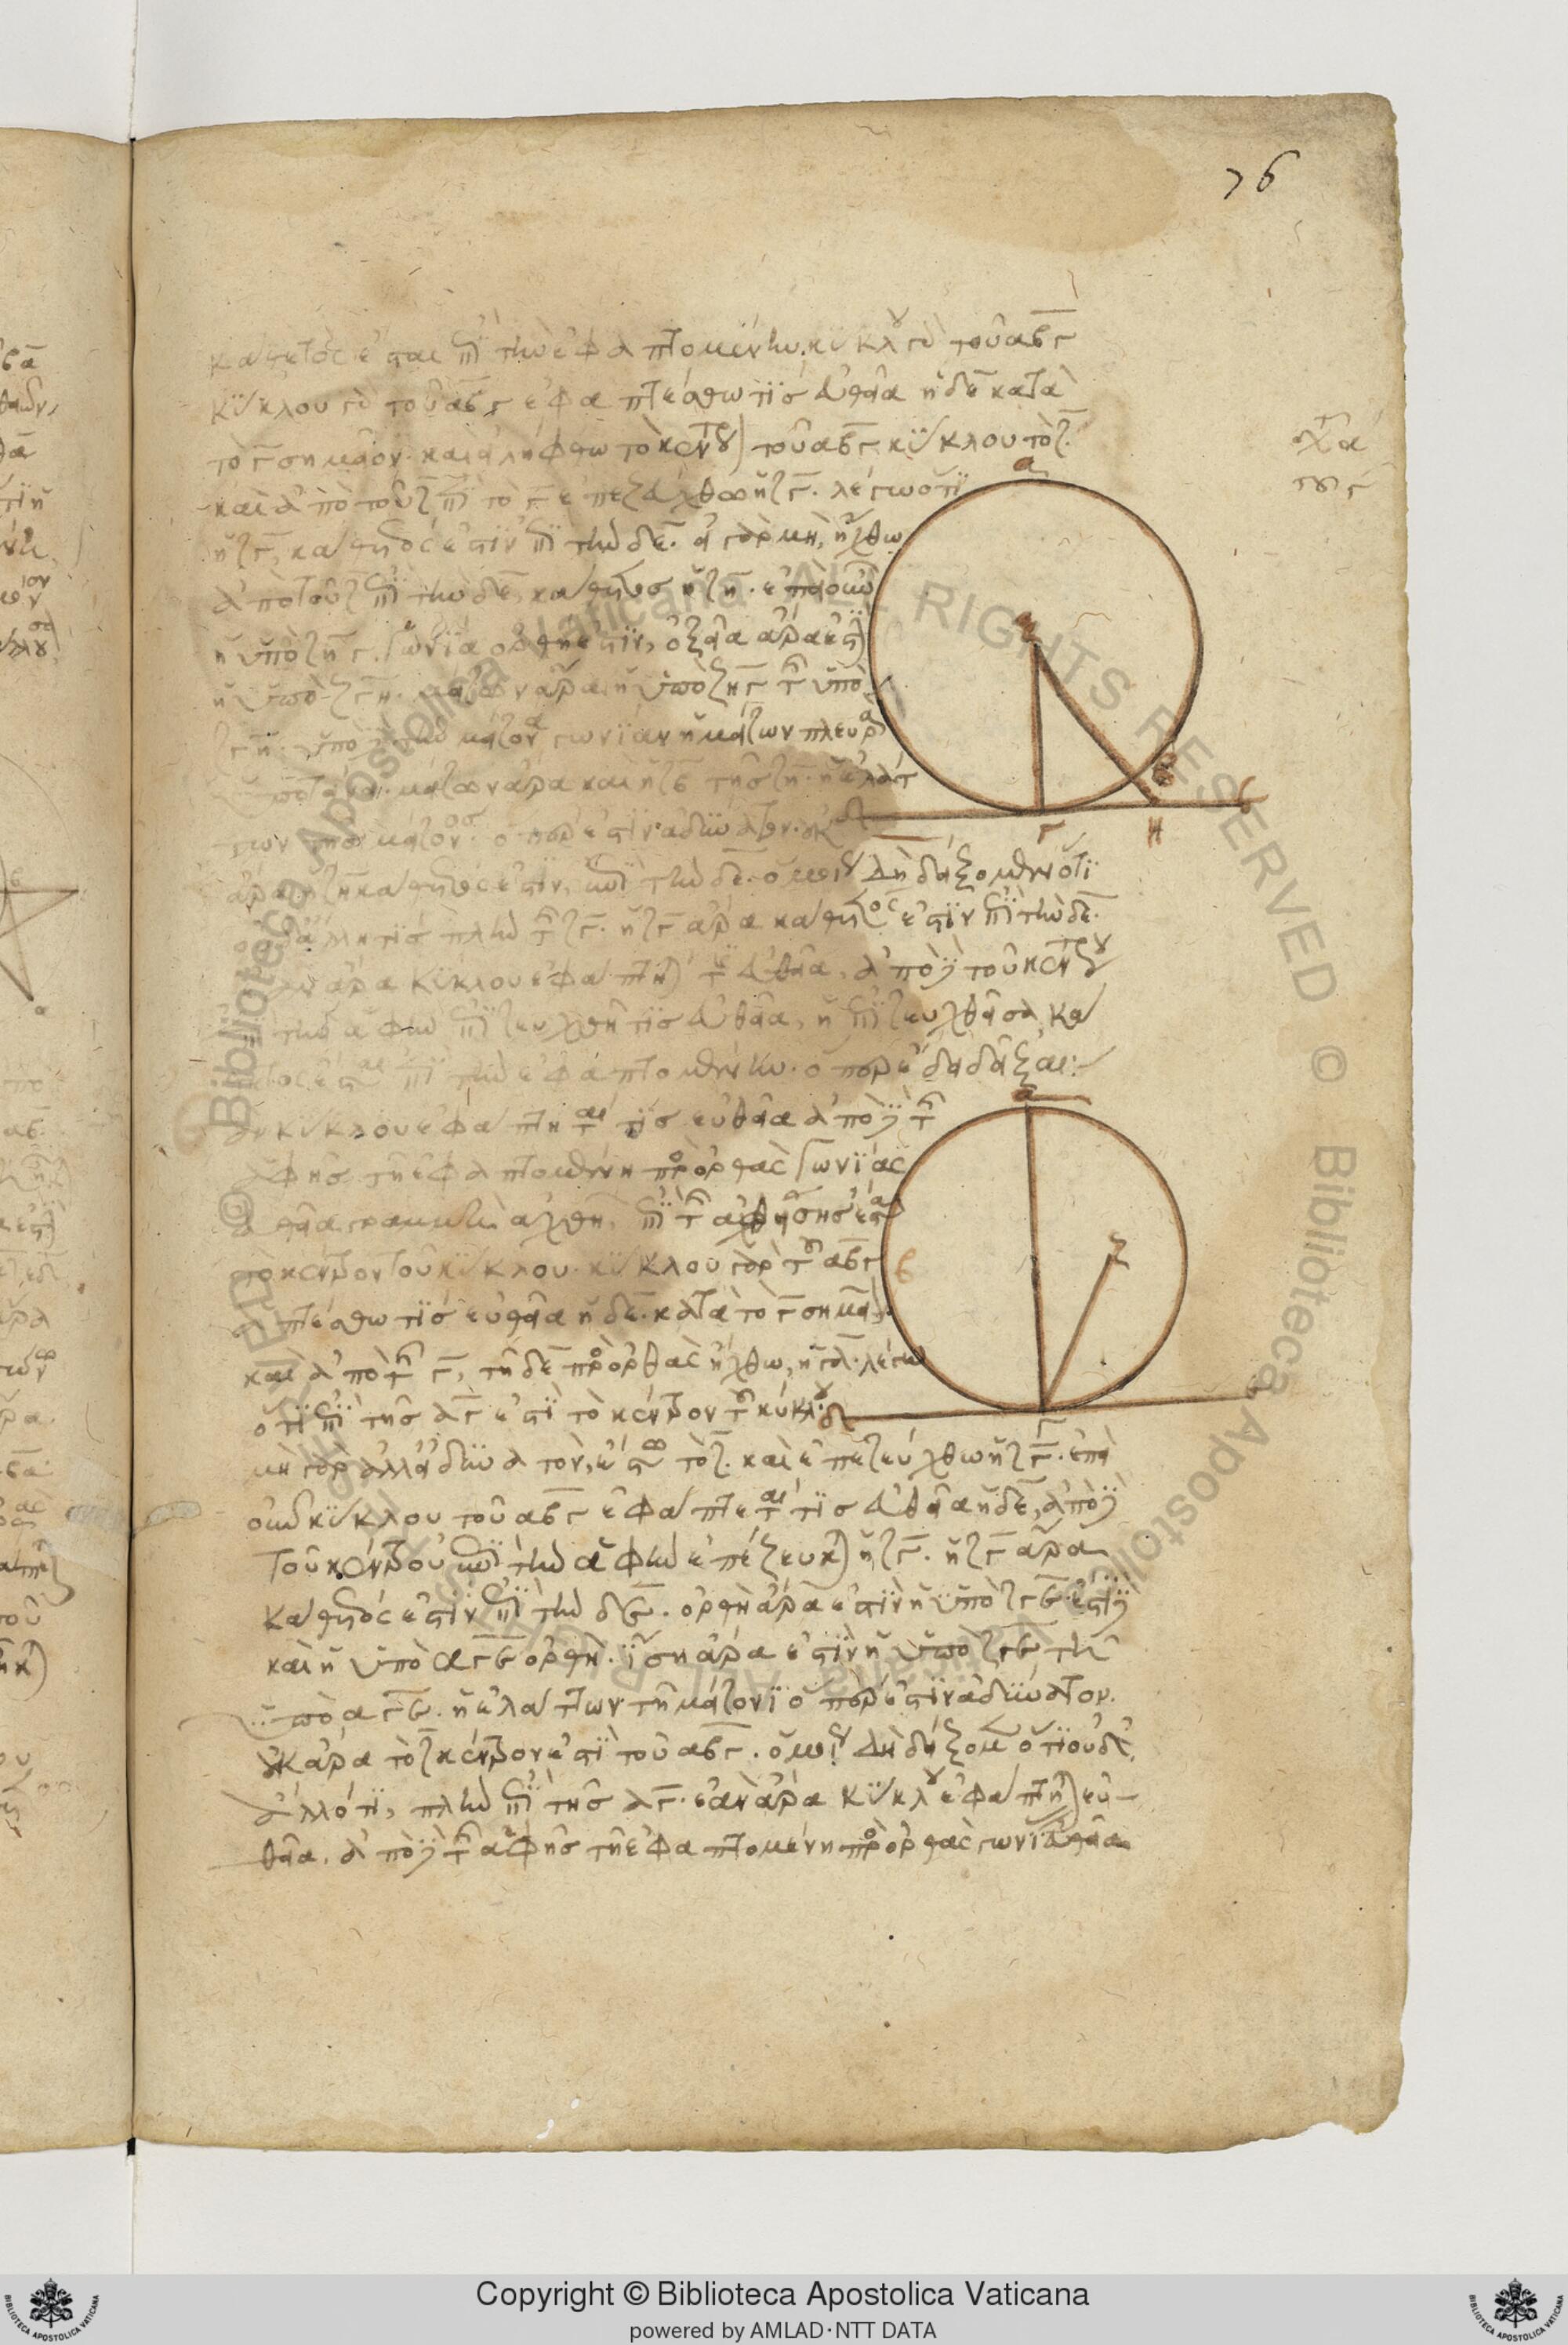 76
κάθετος ἔσται ἐπὶ τὴν ἐφαπτομένην. κύκλου γὰρ τοῦ αβγ
κύκλου γὰρ τοῦ αβγ ἐφαπτέσθω τις εὐθεῖα ἡ δε κατὰ
τὸ γ σημεῖον. καὶ εἰλήφθω τὸ κέντρου τοῦ αβγ κύκλου τὸ ζ.
καὶ ἀπὸ τοῦ ζ ἐπὶ τὸ γ ἐπεζεύχθω ἡ ζγ. λέγω ὅτι
ἡ ζγ, κάθετός ἐστιν ἐπὶ τὴν δε. εἰ γὰρ μὴ, ἤχθω
ἀπὸ τοῦ ζ ἐπὶ τὴν δε κάθετος ἡ ζη. ἐπεὶ οὖν
ἡ ὑπὸ ζηγ γωνία ὀρθή ἐστιν, ὀξεῖα ἄρα ἐστὶ
ἡ ὑπὸ ζγη. μείζων ἄρα ἡ ὑπὸ ζηγ τῆς ὑπὸ
ζγη. ὑπὸ μείζονα γωνίαν ἡ μείζων πλευρὰ
ὑποτείνει. μείζων ἄρα καὶ ἡ ζγ τῆς ζη. ἡ ἐλάτ
των τῆς μείζονος. ὅπερ ἐστὶν ἀδύνατον. οὐκ
ἄρα ἡ ζη κάθετός ἐστιν, ἐπὶ τὴν δε. ὁμοίως δὴ δείξομεν ὅτι
οὐδ' ἄλλη τις πλὴν τῆς ζγ. ἡ ζγ ἄρα κάθετος ἐστὶν ἐπὶ τὴν δε.
ἐὰν ἄρα κύκλου ἐφάπτηταί τις εὐθεῖα, ἀπὸ δὲ τοῦ κέντρου
ἐπὶ τὴν ἁφὴν ἐπιζευχθῇ τις εὐθεῖα, ἡ ἐπιζευχθεῖσα κά
θετος ἔσται ἐπὶ τὴν ἐφαπτομένην. ὅπερ ἔδει δεῖξαι:
ἐὰν κύκλου ἐφάπτηταί τις εὐθεῖα ἀπὸ δὲ τῆς
ἁφῆς τῇ ἐφαπτομένῃ πρὸς ὀρθὰς γωνίας
εὐθεῖα γραμμὴ ἀχθῇ, ἐπὶ τῆς ἀχθείσης ἔσται
τὸ κέντρον τοῦ κύκλου. κύκλου γὰρ τοῦ αβγ
ἁπτέσθω τις εὐθεῖα ἡ δε. κατὰ τὸ γ σημεῖον
καὶ ἀπὸ τοῦ γ, τῇ δε πρὸς ὀρθὰς ἤχθω, ἡ γα. λέγω
ὅτι ἐπὶ τῆς αγ ἐστὶ τὸ κέντρον τοῦ κύκλου
μὴ γὰρ ἀλλ' εἰ δυνατόν, ἔστω τὸ ζ. καὶ ἐπεζεύχθω ἡ ζγ. ἐπεὶ
οὖν κύκλου τοῦ αβγ ἐφάπτεταί τις εὐθεῖα ἡ δε, ἀπὸ δὲ
τοῦ κέντρου ἐπὶ τὴν ἁφὴν ἐπέζευκται ἡ ζγ. ἡ ζγ ἄρα
κάθετός ἐστιν ἐπὶ τὴν δε. ὀρθὴ ἄρα ἐστὶν ἡ ὑπὸ ζγε. ἐστὶ δὲ
καὶ ἡ ὑπὸ αγε ὀρθή. ἴση ἄρα ἐστὶν ἡ ὑπὸ ζγε τῇ
ὑπὸ αγε. ἡ ἐλάττων τῇ μείζονι ὅπερ ἐστὶν ἀδύνατον.
οὐκ ἄρα τὸ ζ κέντρον ἐστὶ τοῦ αβγ. ὁμοίως δὴ δείξομεν ὅτι οὐδὲ
ἄλλο τι, πλὴν ἐπὶ τῆς αγ. ἐὰν ἄρα κύκλου ἐφάπτηταί εὐ
θεῖα. ἀπὸ δὲ τῆς ἁφῆς τῇ ἐφαπτομένῃ πρὸς ὀρθὰς γωνίας εὐθεῖα
α
ζ
β
ε
δ
γ
η
α
β
ζ
ε
δ
γ
Copyright © Biblioteca Apostolica Vaticana
powered by AMLAD·NTT DATA